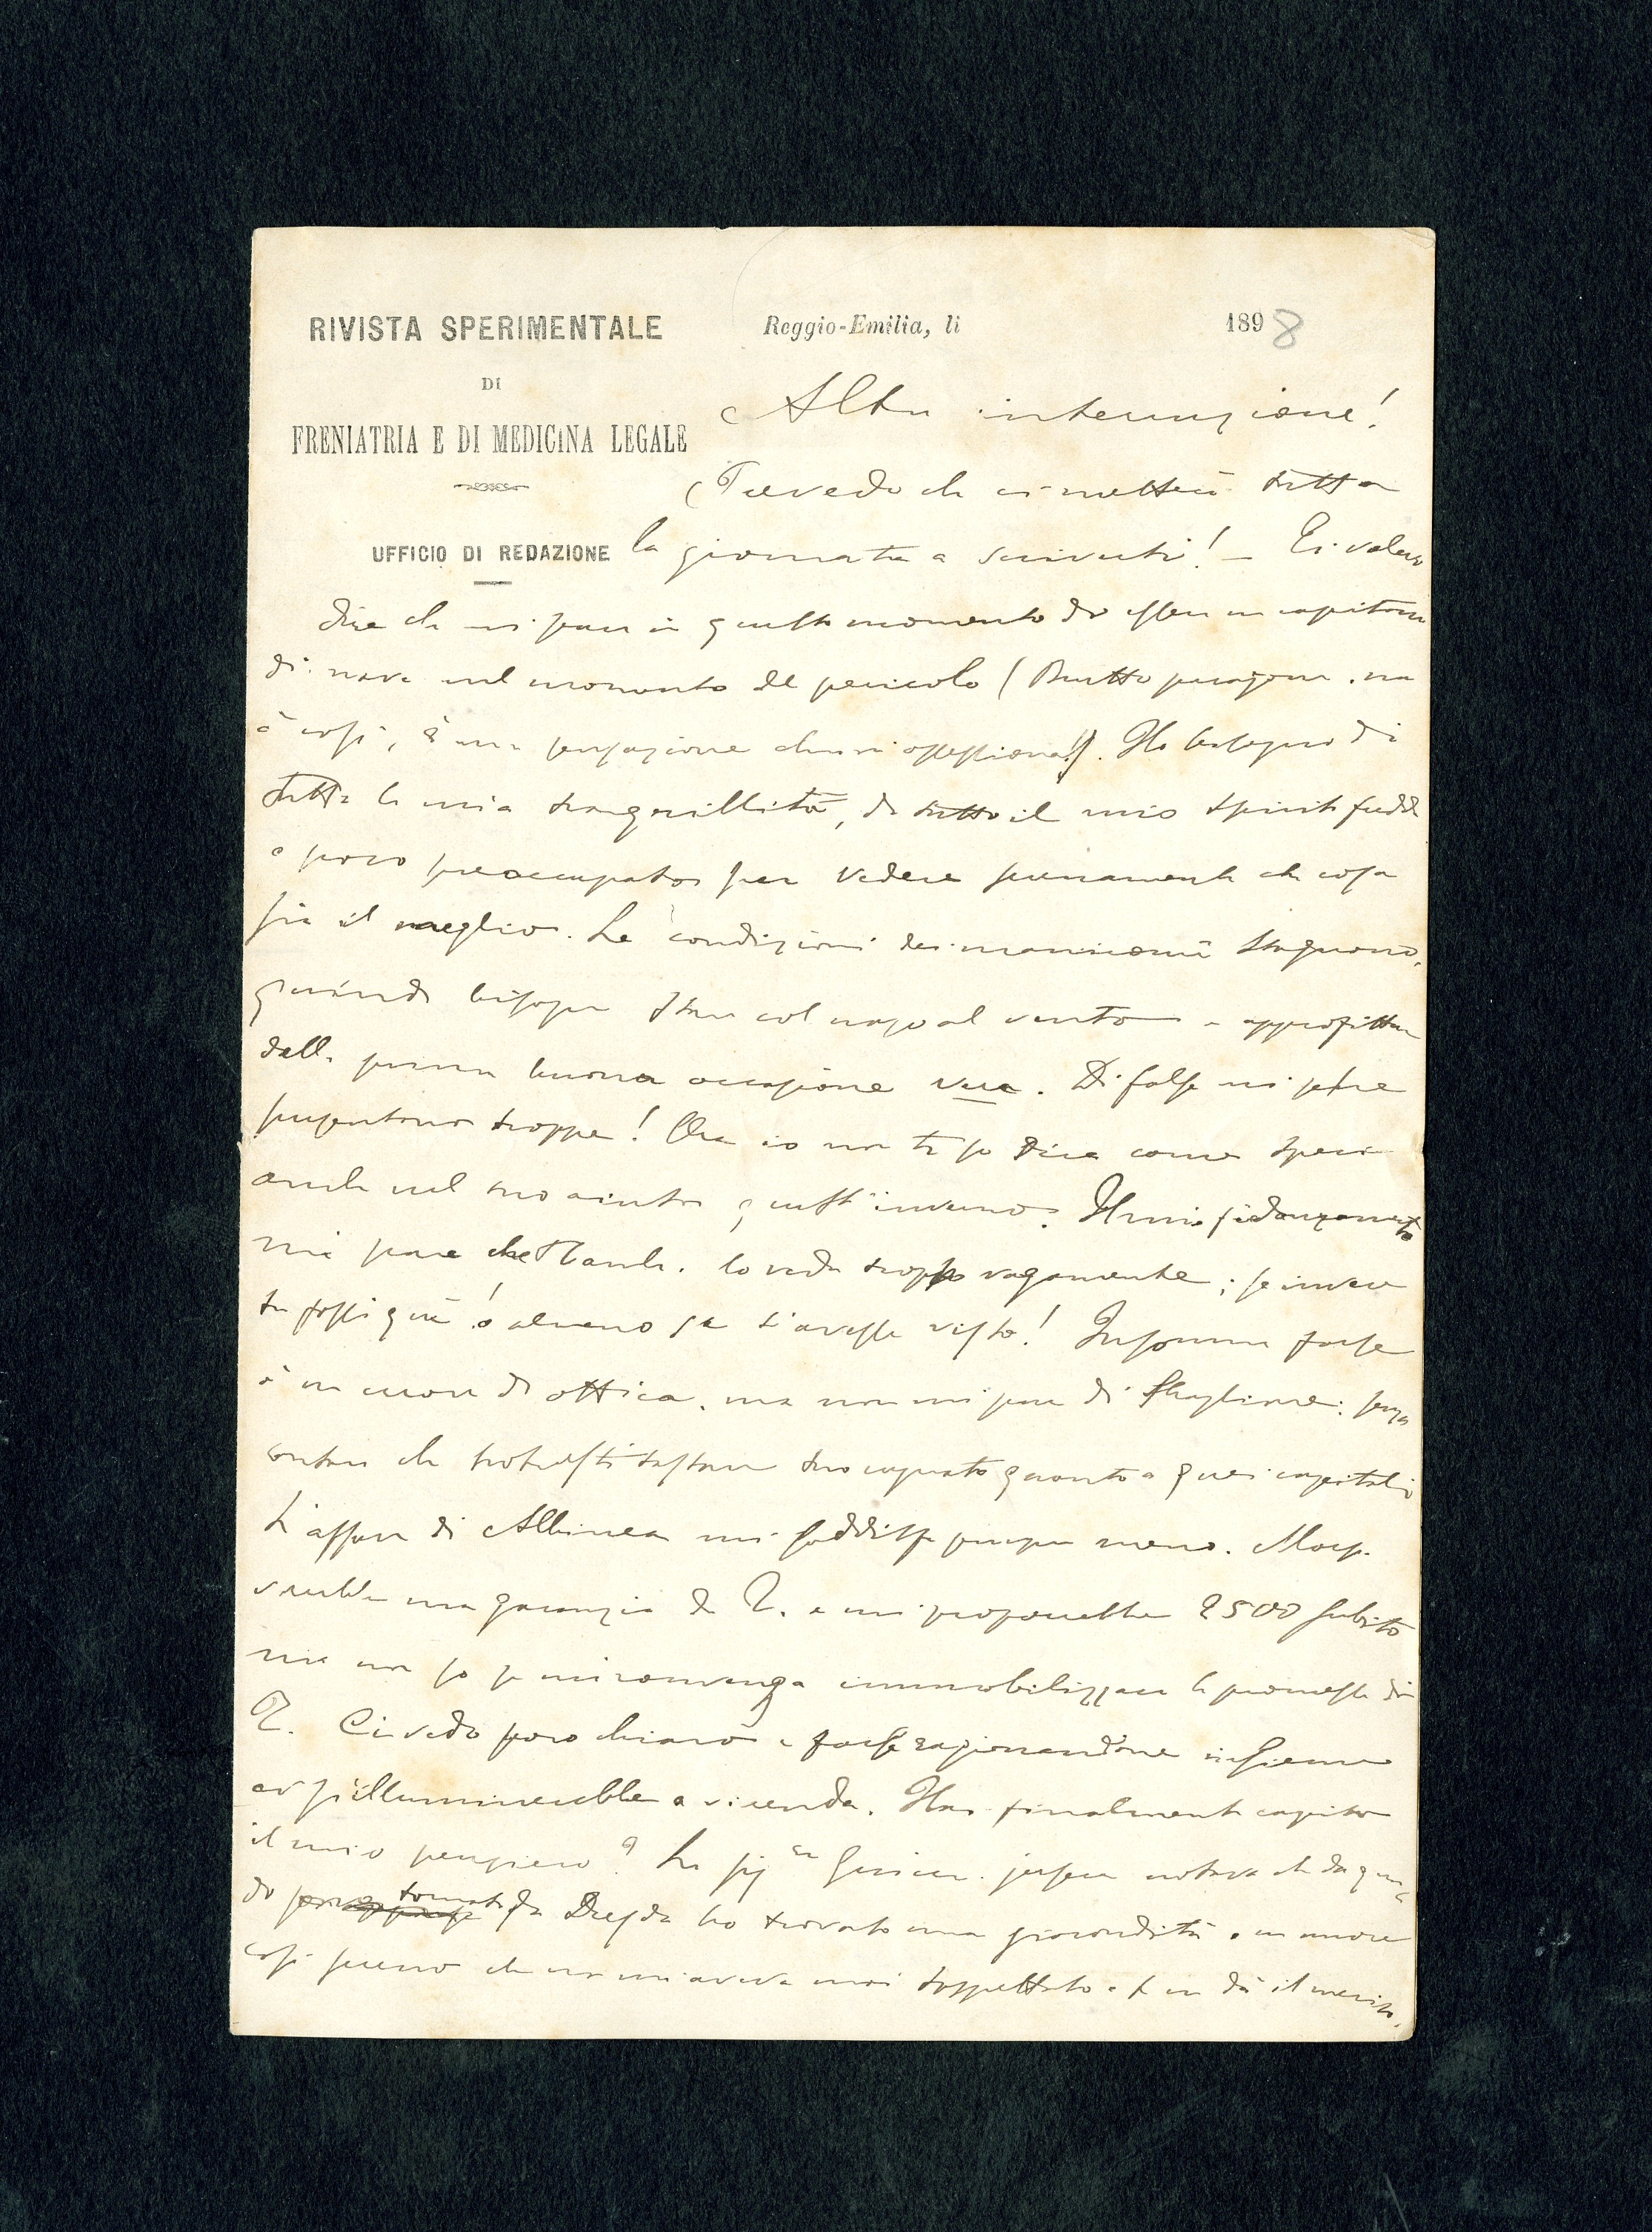 RIVISTA SPERIMENTALE
DI
FRENIATRIA E DI MEDICINA LEGALE
UFFICIO DI REDAZIONE
Reggio-Emilia, li 1898
Altra interruzione!
Prevedo che ci metterò tutta
la giornata a scriverti! – Ti volevo
dire che mi pare in questo momento di esser un capitano
di nave nel momento del pericolo (Brutto paragone, ma
è così, è una sensazione che mi ossessiona!). Ho bisogno di
tutta la mia tranquillità, di tutto il mio spirito freddo
e poco preoccupato per vedere serenamente che cosa
sia il meglio. Le condizioni dei manicomi stagnano,
quindi bisogna stare col naso al vento e approfittare
della prima buona occasione vera. Di false mi se ne
presentano troppe! Ora io non ti so dire come speri
anche nel tuo aiuto quest'inverno. Il mio fidanzamento
mi pare che Tamb. lo veda troppo vagamente; se invece
tu fossi qui o almeno se t'avesse visto! Insomma forse
è un errore di ottica, ma non mi pare di sbagliare: senza
contare che potresti tastare tuo cognato quanto a quei capitali
L'affare di Albinea mi soddisfa sempre meno. Mors.
vorrebbe una garanzia da T. e mi proporrebbe 2500 subito
ma non so se mi convenga immobilizzare le promesse di
T. Ci vedo poco chiaro e forse ragionandone insieme
ci si illuminerebbe a vicenda. Hai finalmente capito
il mio pensiero? La sig.ra iersera notava che da quan
do tornato da Dresda ho trovato una giocondità e un umore
così sereno che non mi aveva mai sospettato e te ne dà il merito.